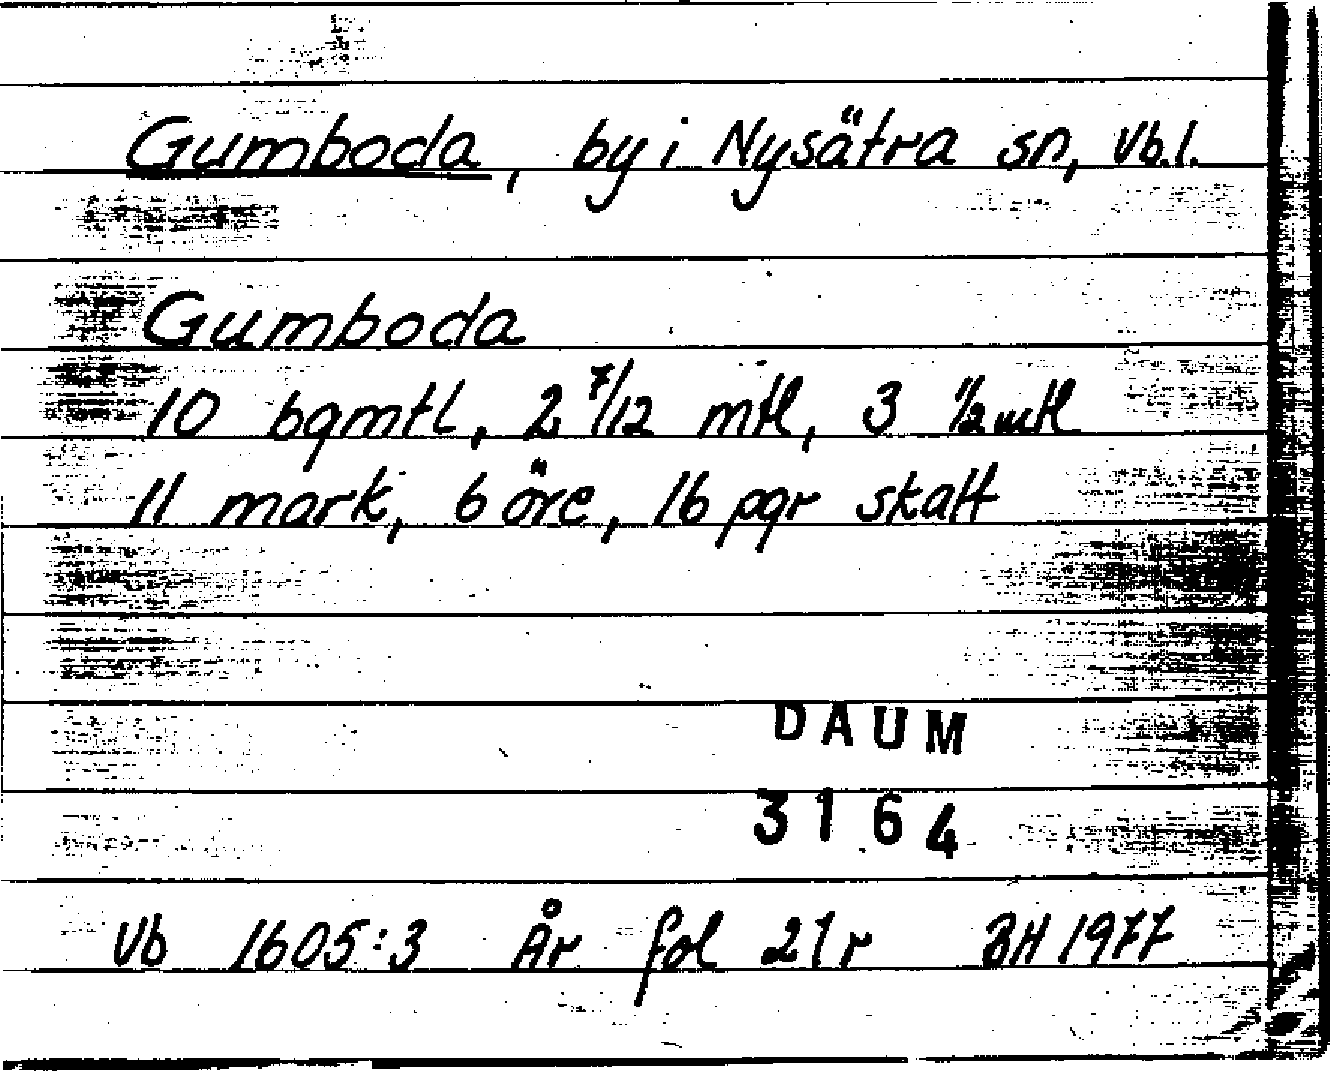 Gumboda, by i Nysätra sn, Vb.l.
Gumboda
10 bgmtl, 2 7/12 mtl, 3 1/2 mtl
11 mark, 6 öre, 16 pgr skatt
DAUM
3164
Vb 1605:3 År fol 21r BH 1977